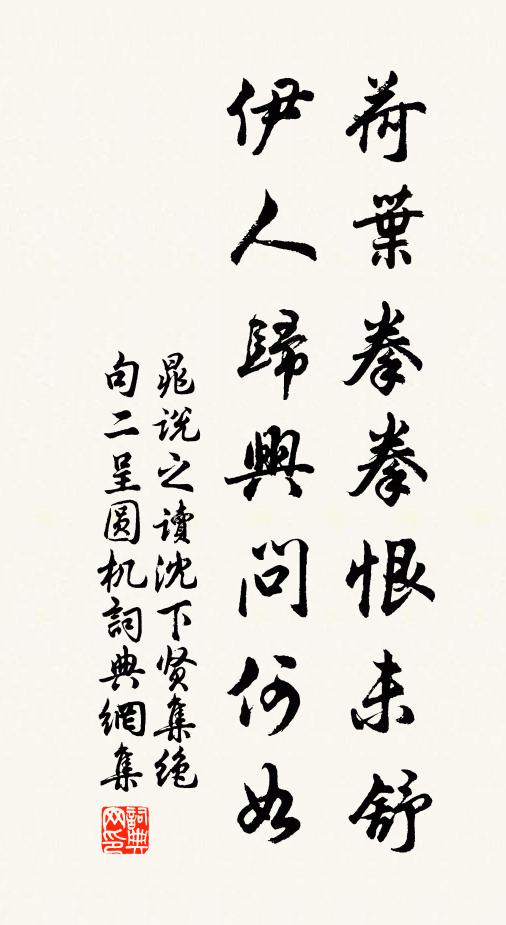 荷葉拳拳恨未舒
伊人歸興問何如
晁说之讀沈下贤集绝
句二呈圆机詞典網集
詞典
网印